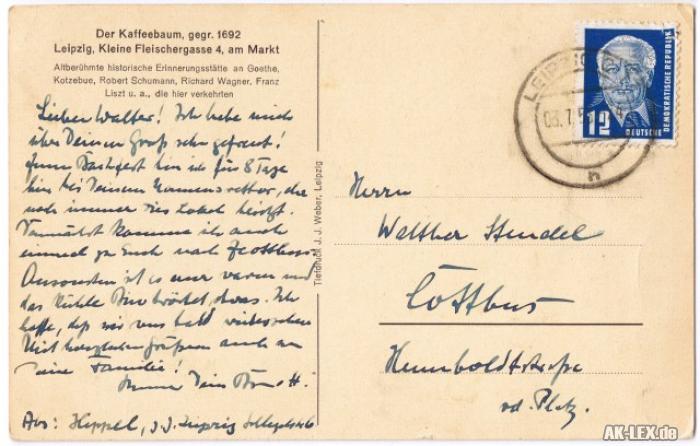 Der Kaffeebaum, gegr. 1692
Leipzig, Kleine Fleischergasse 4, am Markt
Altberühmte historische Erinnerungsstätte an Goethe,
Kotzebue, Robert Schumann, Richard Wagner, Franz
Liszt u. a., die hier verkehrten
Lieber Walter! Ich habe mich
über Deinen Gruß sehr gefreut!
Zum Bachfest bin ich für 8 Tage
hier bei Deinem Namensvetter, der
noch immer dies Lokal
komme ich auch
einmal zu Euch nach
Ansonsten ist es warm und
das Kühle etwas. Ich
hoffe, daß wir uns bald wiedersehen
Mit herzlichen Grüßen auch an
Deine Familie!
Immer Dein
Abs: Leipzig
Tiefdruck J. J. Weber, Leipzig
LEIPZIG
12
DEUTSCHE
DEMOKRATISCHE REPUBLIK
Herrn
Walther Stendel
Cottbus
Humboldtstraße
od. Platz.
AK-LEX.de